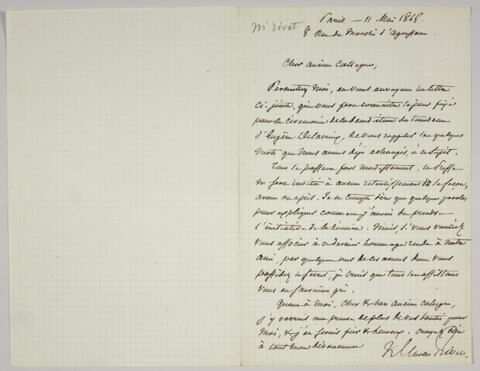 Mr Rivet
Paris — 11 Mai 1868.
8 Rue du Marché d'Aguesseau
Cher ancien Collègue,
Permettez moi, en vous envoyant la lettre
ci-jointe, qui vous fera connaître le jour fixé
pour la cérémonie de la bénédiction du tombeau
d'Eugène Delacroix, de vous rappeler les quelques
mots que nous avons déjà échangés, à ce sujet.
Tout se passera fort modestement.
sera invitée à aucun retentissement de sa façon,
avant ou après. Je ne compte dire que quelques paroles
pour expliquer comment j'aurai du prendre
l'initiative de la réunion. Mais, si vous vouliez
vous associer à ce dernier hommage rendu à notre
ami, par quelques uns de ces accents dont vous
possédez le secret, je crois que tous les assistants
vous en sauraient gré.
Quant à moi, cher & bon ancien collègue,
j'y verrais une preuve de plus de vos bontés pour
moi, & j'en serais fier & heureux. Croyez
à tout mon dévouement
Rivet